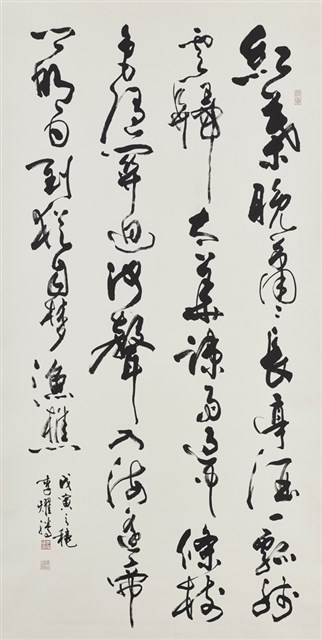 紅葉晚蕭々長亭酒一瓢殘
雲歸太華疎雨過中條樹
色隨關迥河聲入海遙帝
鄉明日到猶自梦漁樵
戊寅之穐
李燿